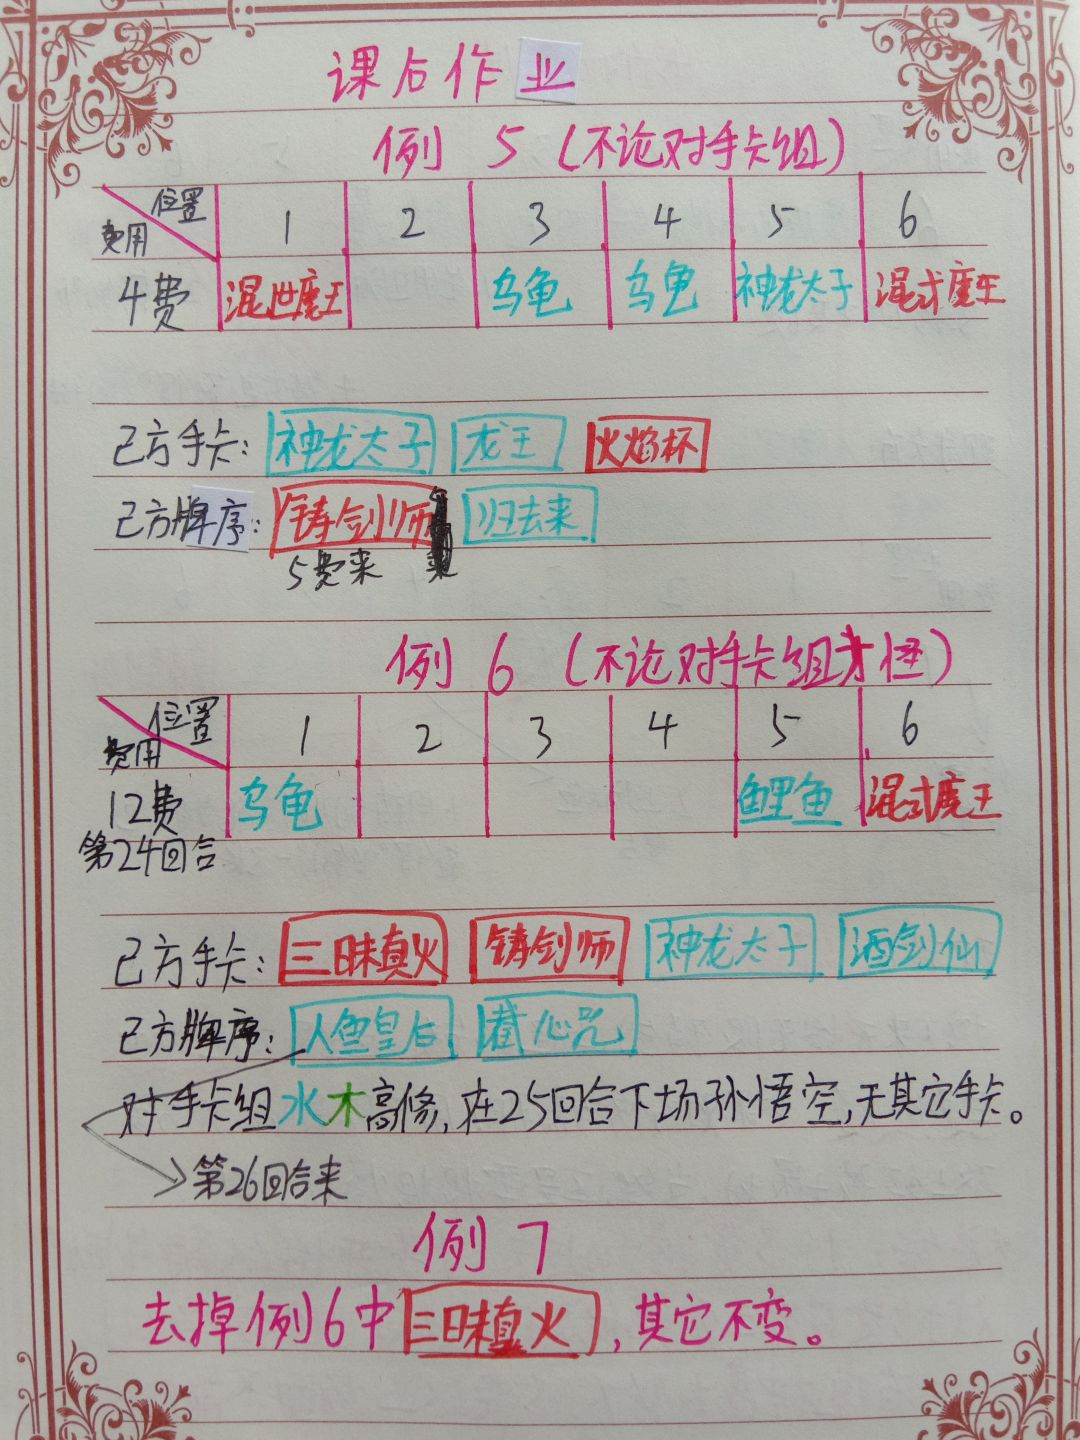 课后作业
例 5 (不论对手卡组)
位置 费用 1 2 3 4 5 6
4费 混世魔王 乌龟 乌龟 神龙太子 混世魔王
己方手卡: 神龙太子 龙王 火焰杯
己方牌序: 铸剑师 归去来
5费来
例 6 (不论对手卡组) 
位置 费用 1 2 3 4 5 6
12费 乌龟 鲤鱼 混世魔王
第24回合
己方手卡: 三昧真火 铸剑师 神龙太子 酒剑仙
己方牌序: 人鱼皇后 截心咒
对手卡组水木高修,在25回合下场孙悟空,无其它手卡。
第26回合来
例 7
去掉例6中三昧真火,其它不变。